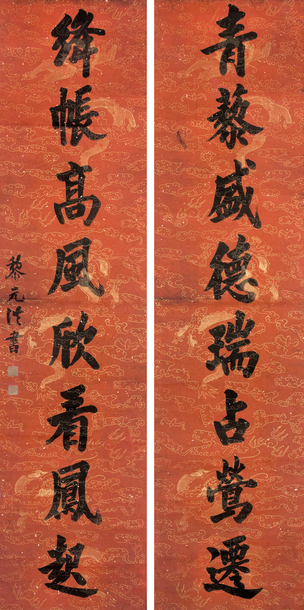 青藜盛德瑞占鶯遷
絳帳高風欣看鳳起
黎元洪書